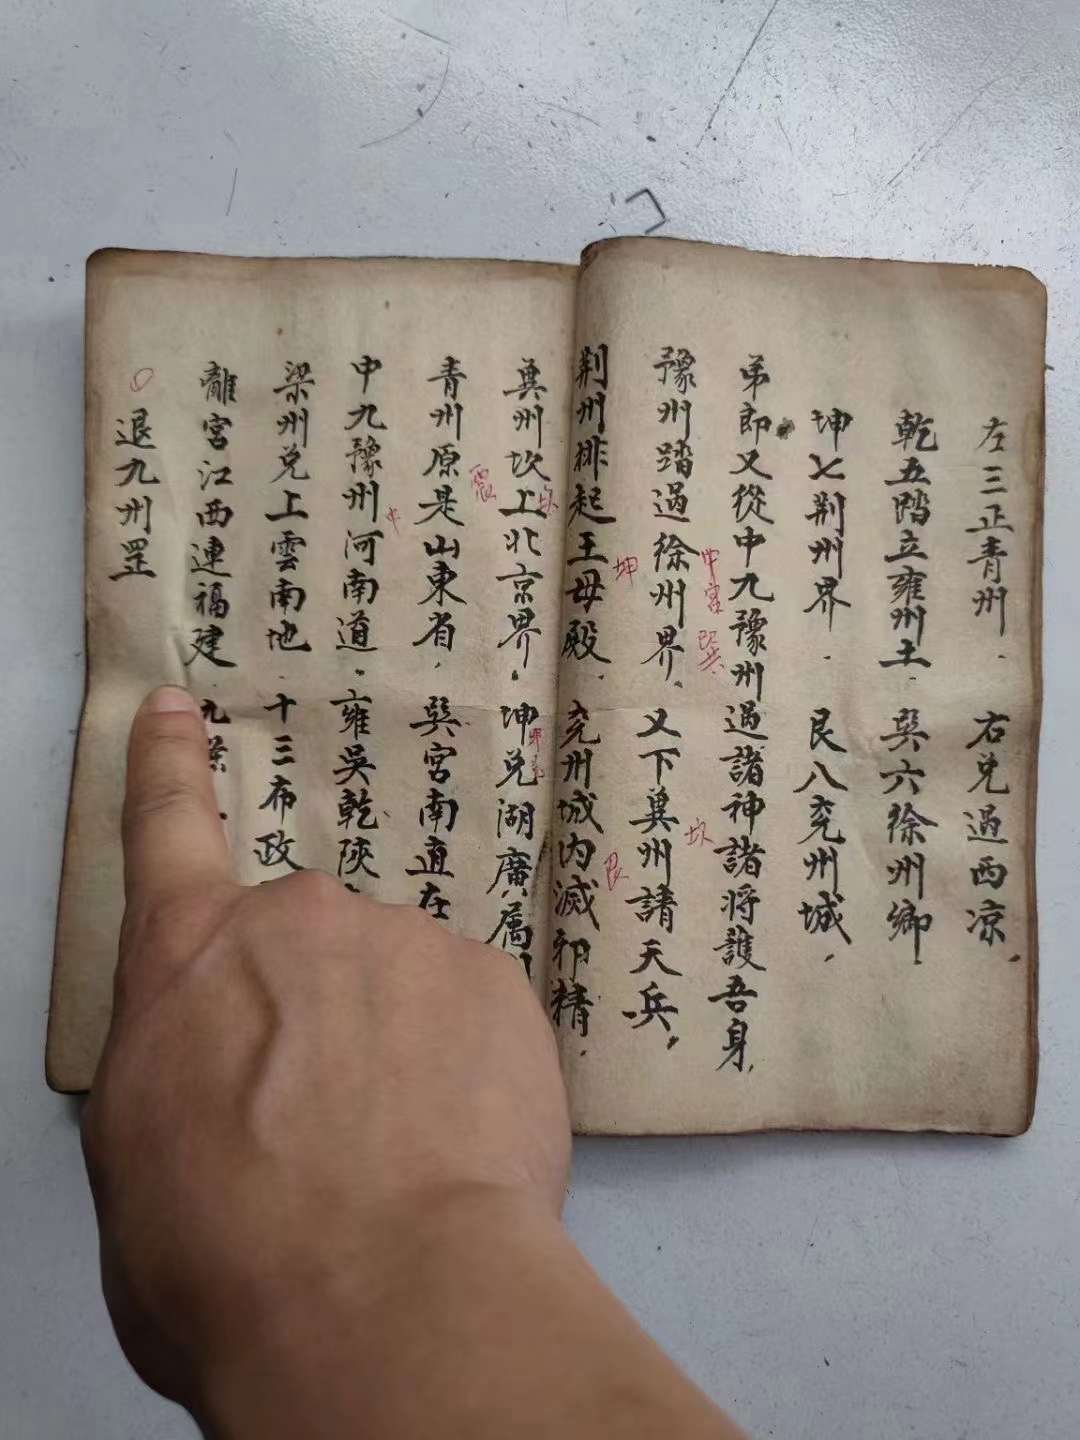 左三正青州．右兌過西凉，
乾五踏立雍州土．巽六徐州鄉．
坤七荆州界．艮八兖州城，
弟郎又從中九豫州過諸神諸将護吾身，
中宮 巽
豫州踏過徐州界、又下冀州請天兵，
坤 坎
荆州排起王母殿．兖州城内滅邪精．
艮
冀州坎上北京界，坤兌湖廣属
坎
青州原是山東省，巽宮南直在
震
中九豫州河南道．雍吳乾陝
中
梁州兌上雲南地．十三布政
離宮江西連福建．
退九州罡